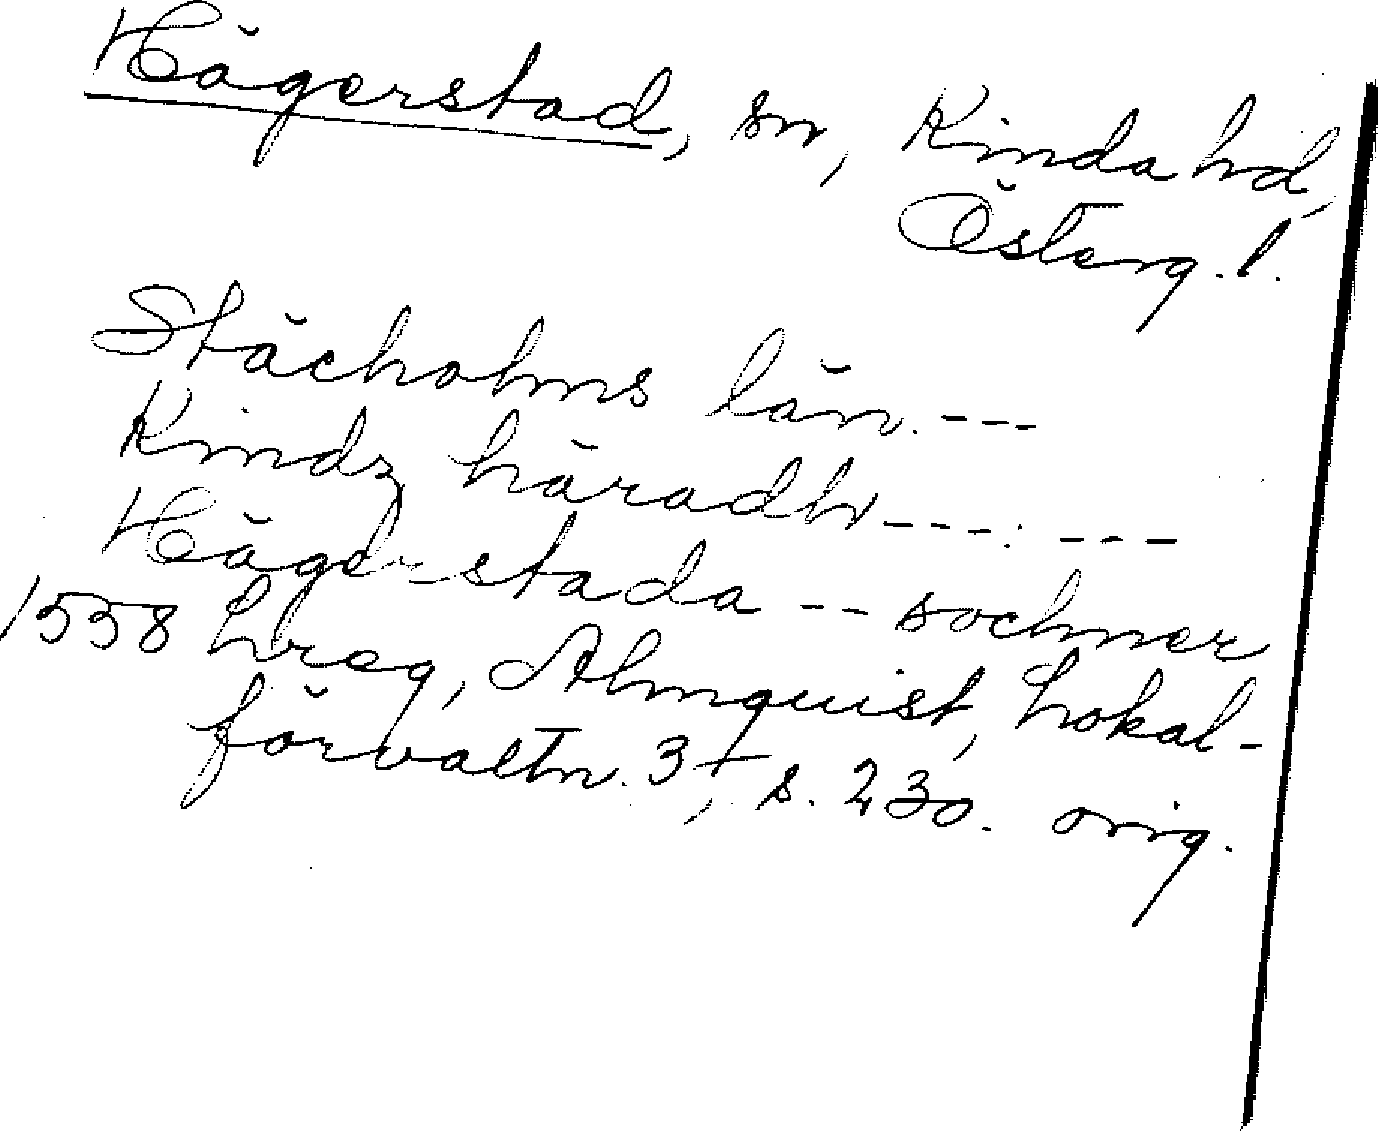 Hägerstad, sn, Kinda hd,
Österg. l.
Stächolms län. ---
Kindz häradh ---. ---
Hägerstada -- sochner
1558 Lreg, Almquist, Lokal-
förvaltn. 3, s. 230. orig.